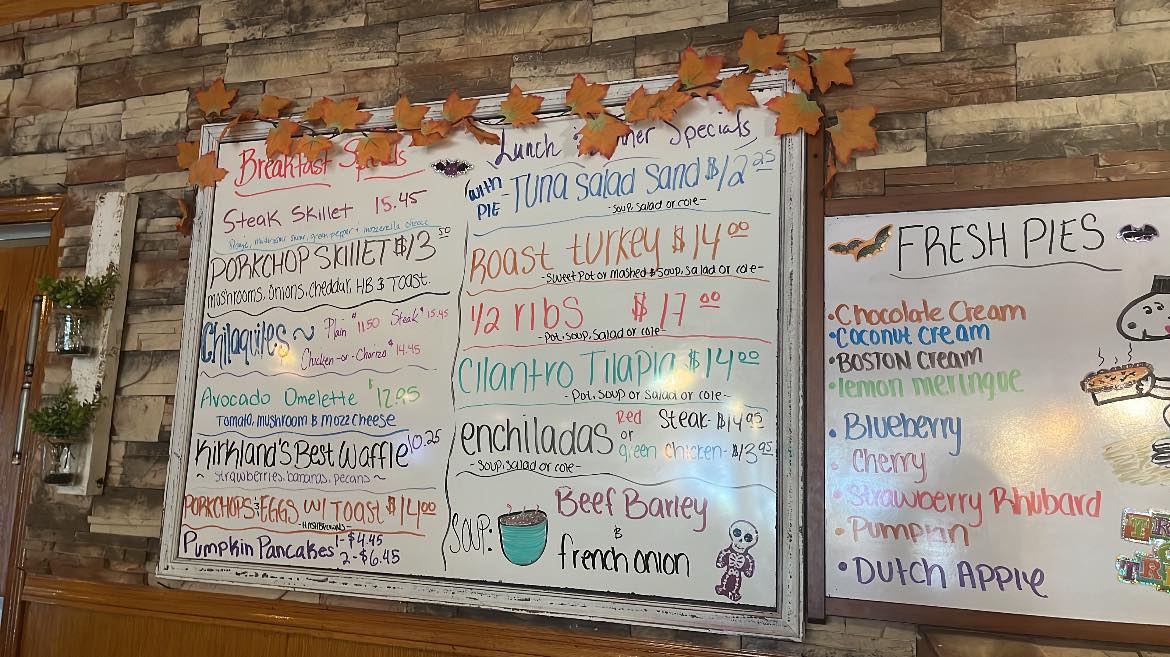 Breakfast Specials
Steak Skillet 15.45
green pepper & mozzarella cheese
PORKCHOP SKILLET $13 50
mushrooms, onions, cheddar, HB & TOAST.
Chilaquiles ~ Plain $11.50 Steak $15.45
Chicken-or-Chorizo $14.45
Avocado Omelette $12.95
Tomato, mushroom & mozz cheese
Kirkland's Best Waffle 10.25
~ strawberries, bananas, pecans ~
PORKCHOPS & EGGS W/ TOAST $14 00
-HASHBROWNS-
Pumpkin Pancakes 1-$4.45
2-$6.45
Lunch Specials
with PIE - Tuna Salad Sand $12 25
-Soup, salad or cole-
Roast turkey $14 00
-Sweet Pot or mashed & Soup, salad or cole-
1/2 ribs $17 00
-Pot, soup, salad or cole-
Cilantro Tilapia $14 00
-Pot, Soup or Salad or cole-
enchiladas Red or green Steak-$14.95
Chicken-$13.95
-Soup, salad or cole-
SOUP: Beef Barley
&
french onion
FRESH PIES
•Chocolate Cream
•Coconut cream
•BOSTON Cream
•lemon meringue
•Blueberry
•Cherry
•Strawberry Rhubard
•Pumpkin
•Dutch Apple